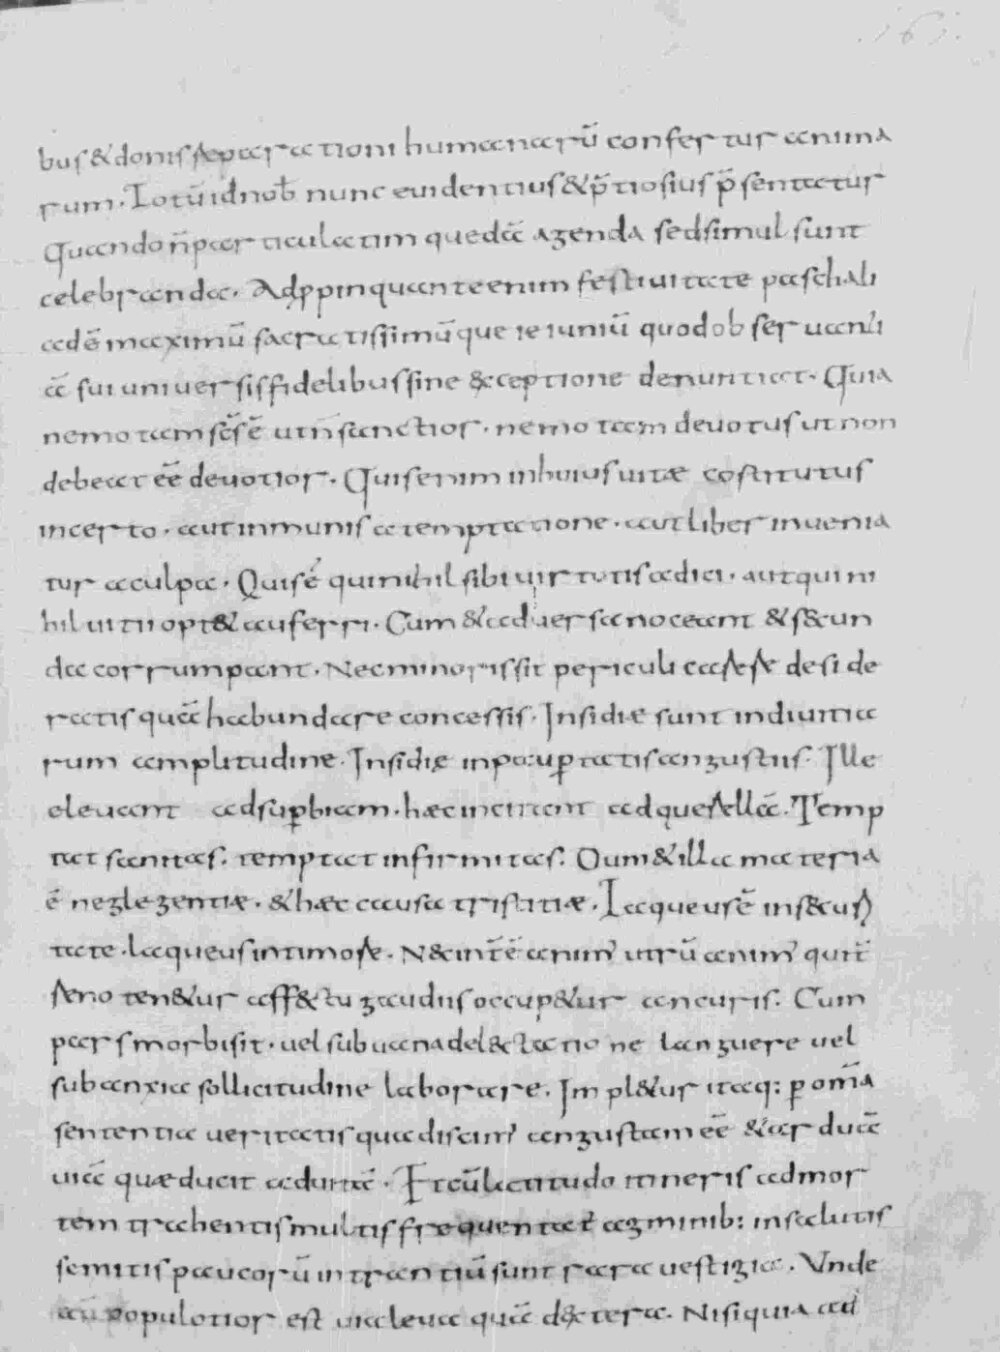 bus & donis separationi humanarū confertur anima
rum. Totū id nob̄ nunc euidentius & p̄tiosius p̄sentatur
Quando n̄ particulatim quedā agenda sed simul sunt
celebranda. Adp̄pinquante enim festiuitate paschali
adē maximū sacratissimūque ieiuniū quod obseruanti
ā sui uniuersis fidelibus sine &ceptione denuntiat. Quia
nemo tam sc̄s ē ut n̄ sanctior. nemo tam deuotus ut non
debeat eē deuotior. Quis enim in huius uitæ costitutus
incerto. aut inmunis a temptatione. aut liber inuenia
tur a culpa. Quis ē qui nihil sibi uirtutis adici. aut qui ni
hil uitii opt& auferri. Cum & aduersa noceant & s&un
da corrumpant. Nec minoris sit periculi caſese deside
ratis quā habundare concessis. Insidiæ sunt in diuitia
rum amplitudine. Insidiæ in paup̄tatis angustiis. Ille
eleuant ad sup̄biam. hæc incitant ad querellā. Temp
tat sanitas. temptat infirmitas. Dum & illa materia
ē neglegentiæ. & hæc causa tristitiæ. Laqueus ē in s&uri
tate. laqueus in timore. N& int̄ē animꝰ utrū animꝰ qui t̄
reno ten&ur aff&tu gaudiis occup&ur an curis. Cum
pars morbi sit. uel sub uana del&tatione languere uel
sub anxia sollicitudine laborare. Impl&ur itaq: p̄ om̄a
sententia ueritatis qua discimꝰ angustam eē & arduā
uiā quæ ducit ad uitā. Et cū latitudo itineris ad mor
tem trahentis multis frequentat̄ agminib: in salutis
semitis paucorū intrantiū sunt rara uestigia. Vnde
aū populotior est uia leua quā d&tera. Nisi quia ad